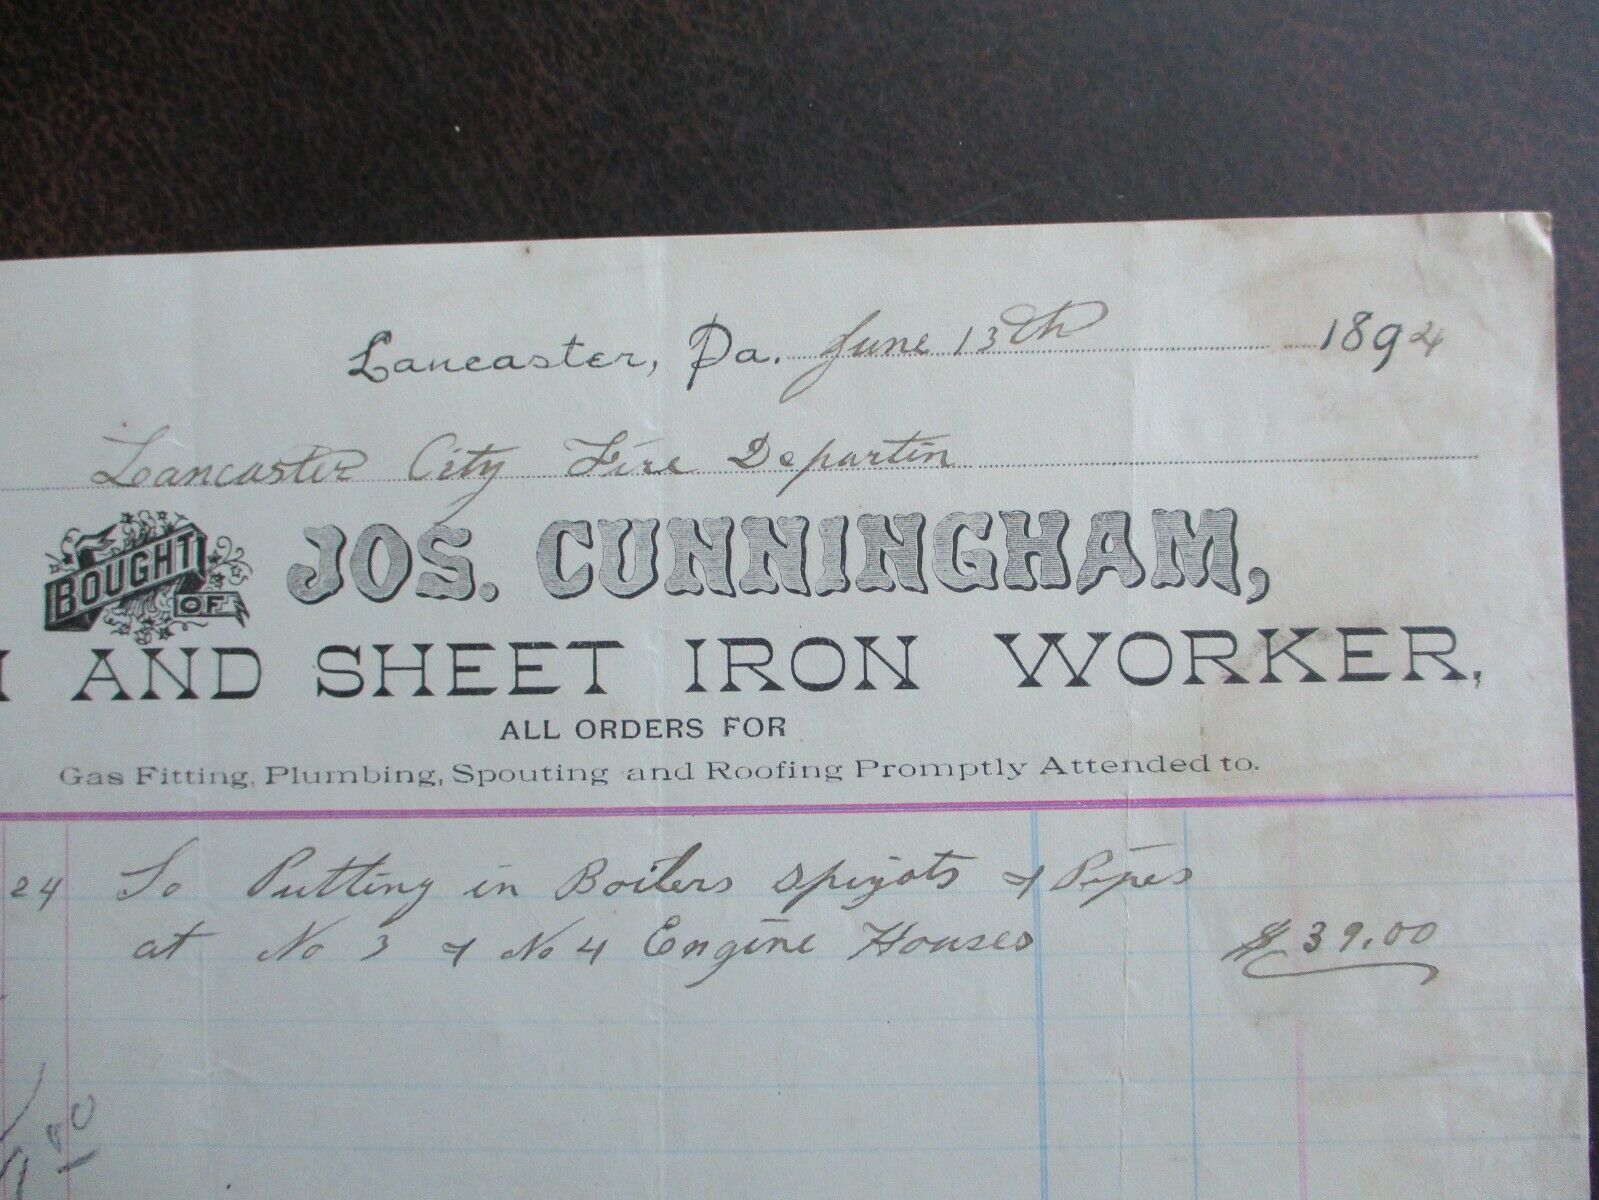 Lancaster, Pa. June 13th 1894
Lancaster City Fire Departin
BOUGHT OF JOS. CUNNINGHAM,
AND SHEET IRON WORKER,
ALL ORDERS FOR
Gas Fitting, Plumbing, Spouting and Roofing Promptly Attended to.
24 To Putting in Boilers Spigots & Pipes
at No 3 & No 4 Engine Houses $39.00